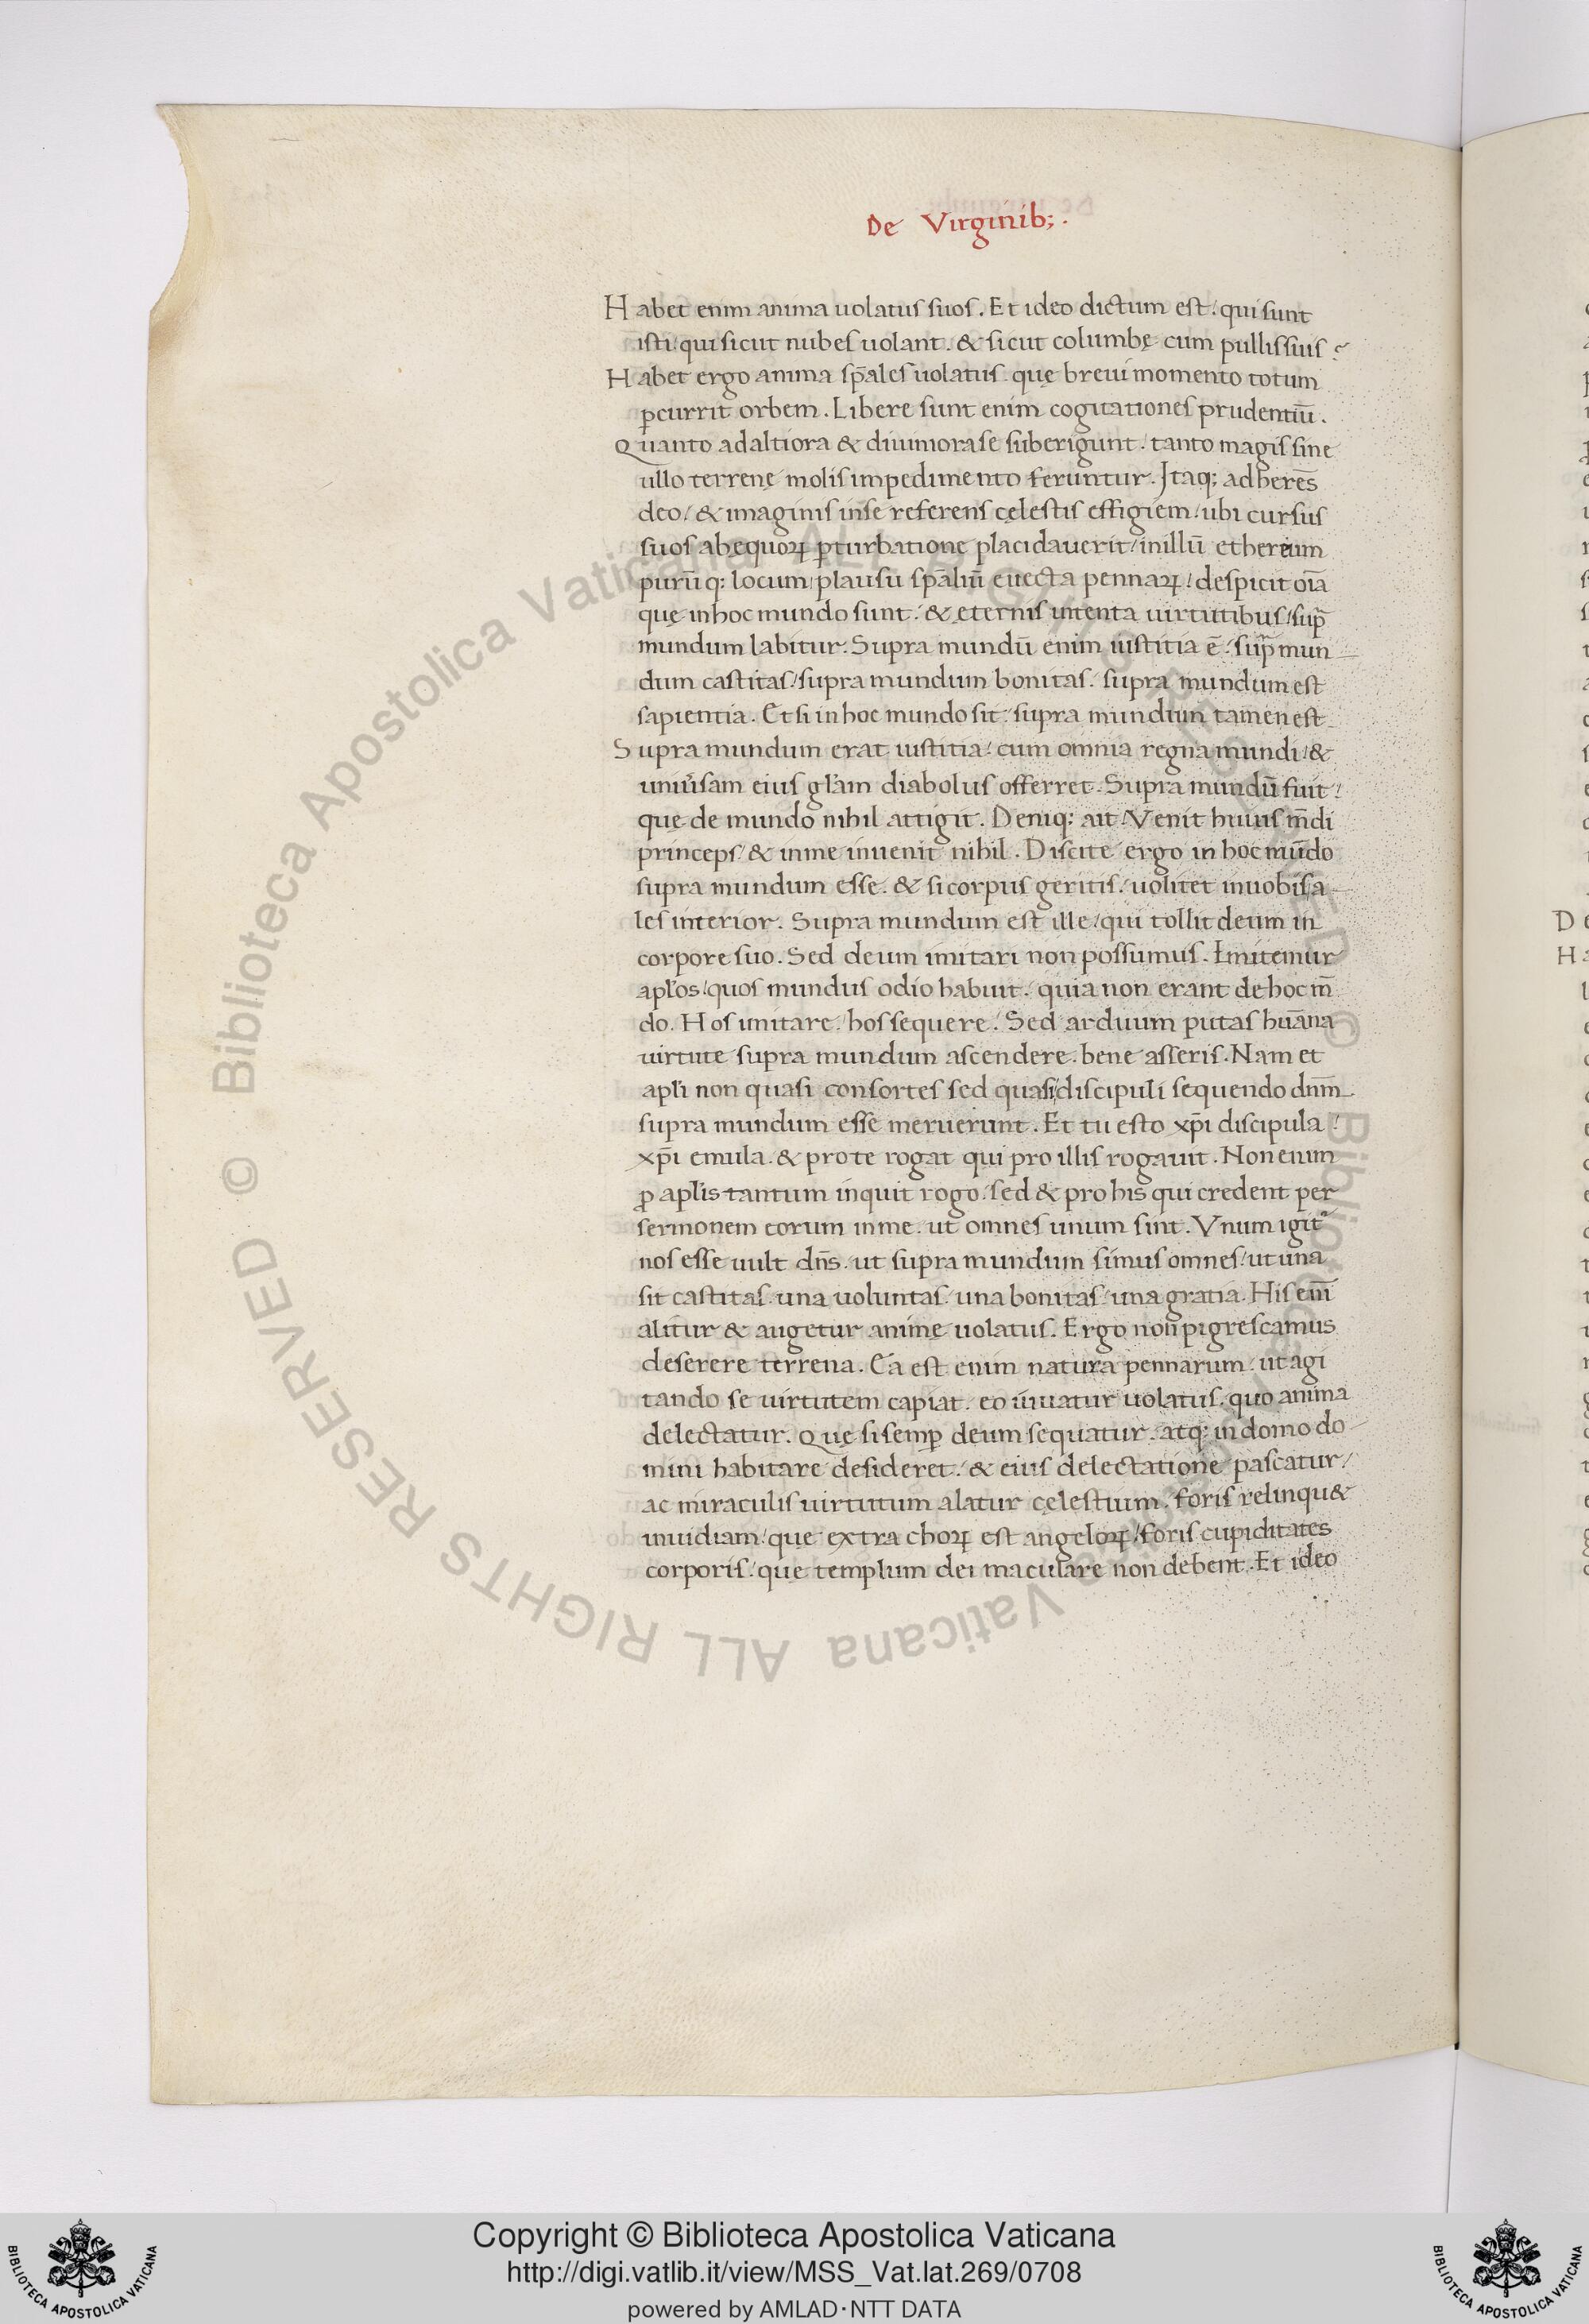 De Virginib;.
Habet enim anima uolatus suos. Et ideo dictum est/ qui sunt
isti/ qui sicut nubes uolant. & sicut columbę cum pullis suis?
Habet ergo anima sp̄ales uolatus. quę breui momento totum
p̱currit orbem. Libere sunt enim cogitationes prudentiū.
Quanto ad altiora & diuiniora se suberigunt. tanto magis sine
ullo terrenę molis impedimento feruntur. Itaq; adherēs
deo/ & imaginis in se referens cęlestis effigiem/ ubi cursus
suos ab ęquoꝝ p̱turbatione placidauerit/ in illū ethereum
purūq; locum/ plausu sp̄aliū euecta pennaꝝ/ despicit oīa
quę in hoc mundo sunt. & ęternis intenta uirtutibus/ sup̄
mundum labitur. Supra mundū enim iustitia ē/ sup̄ mun
dum castitas/ supra mundum bonitas. supra mundum est
sapientia. Et si in hoc mundo sit/ supra mundum tamen est.
Supra mundum erat iustitia/ cum omnia regna mundi/ &
uniu̓sam eius gl̄am diabolus offerret. Supra mundū fuit/
que de mundo nihil attigit. Deniq; ait/ Venit huius m̄di
princeps/ & in me inuenit nihil. Discite ergo in hoc mūdo
supra mundum esse. & si corpus geritis/ uolitet in uobis a
les interior. Supra mundum est ille/ qui tollit deum in
corpore suo. Sed deum imitari non possumus. Imitemur
apl̄os/ quos mundus odio habuit. quia non erant de hoc m̄
do. Hos imitare/ hos sequere. Sed arduum putas hūana
uirtute supra mundum ascendere. bene asseris. Nam et
apl̄i non quasi consortes sed quasi discipuli sequendo dn̄m
supra mundum esse meruerunt. Et tu esto xp̄i discipula/
xp̄i emula. & pro te rogat qui pro illis rogauit. Non enim
ꝓ apl̄is tantum inquit rogo/ sed & pro his qui credent per
sermonem eorum in me. ut omnes unum sint. Vnum igit᷑
nos esse uult dn̄s. ut supra mundum simus omnes/ ut una
sit castitas. una uoluntas/ una bonitas/ una gratia. His eni̅
alitur & augetur animę uolatus. Ergo non pigrescamus
deserere terrena. Ea est enim natura pennarum/ ut agi
tando se uirtutem capiat. eo iuuatur uolatus. quo anima
delectatur. Quę si semp̱ deum sequatur. atq; in domo do
mini habitare desideret. & eius delectatione pascatur/
ac miraculis uirtutum alatur cęlestium. foris relinqu&
inuidiam/ quę extra choꝝ est angeloꝝ/ foris cupiditates
corporis/ quę templum dei maculare non debent. Et ideo
© Biblioteca Apostolica Vaticana ALL RIGHTS RESERVED
© Biblioteca Apostolica Vaticana ALL RIGHTS RESERVED
D
H
BIBLIOTECA APOSTOLICA VATICANA
Copyright © Biblioteca Apostolica Vaticana
http://digi.vatlib.it/view/MSS_Vat.lat.269/0708
powered by AMLAD·NTT DATA
BIBLIOTECA APOSTOLICA VATICANA